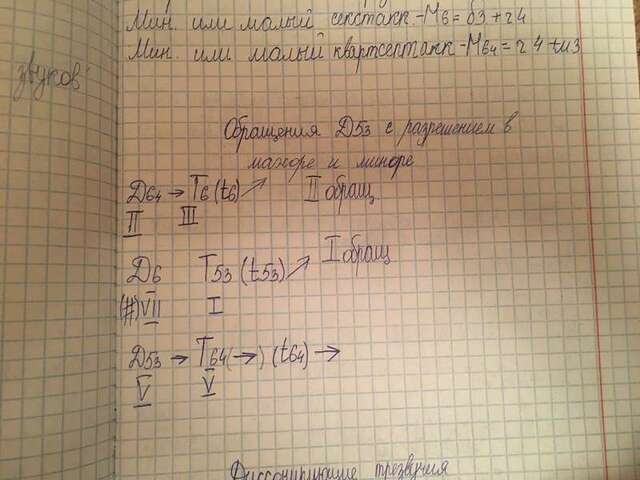 звуков
Мин. или малый секстакк - М6 = б3 + ч4
Мин. или малый квартсекстакк - М64 = ч4 + м3
Обращения Д53 с разрешением в
мажоре и миноре
Д64 → Т6 (t6) ↗ II обращ.
II III
Д6 Т53 (t53) ↗ I обращ
(#)VII I
Д53 → Т64 (→) (t64) →
V V
трезвучия